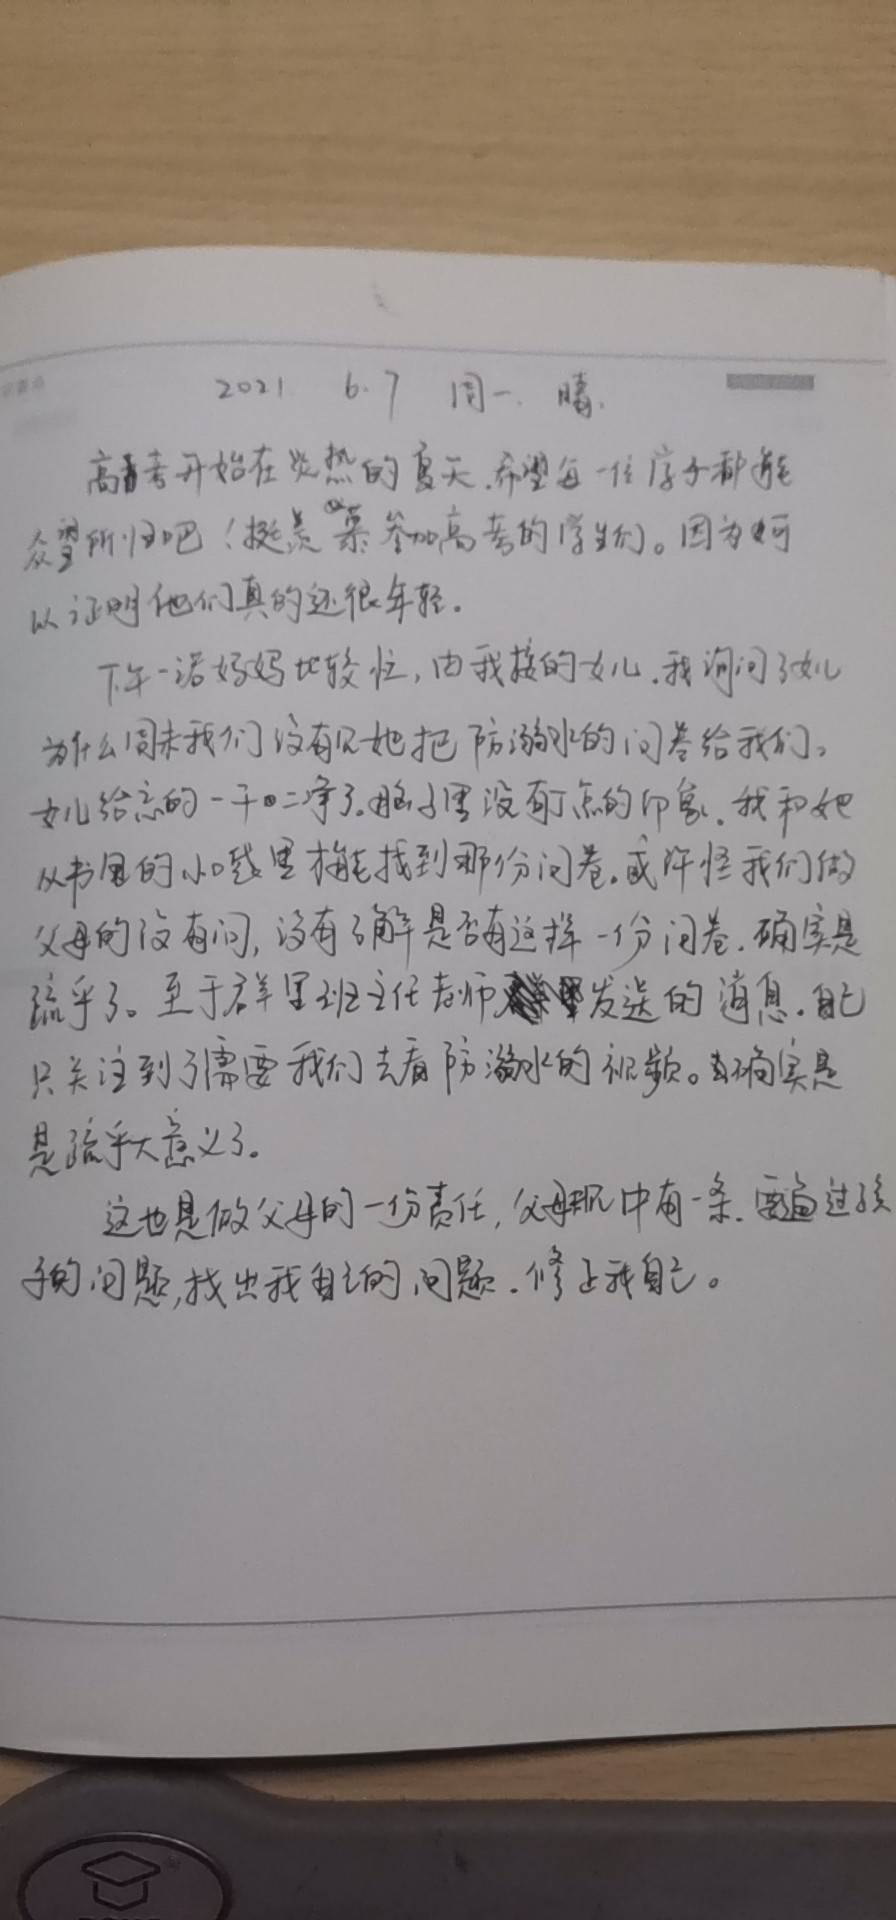 2021 6.7 周一. 晴.
高考开始在炎热的夏天.希望每一位学子都能
众望所归吧！挺羡慕参加高考的学生们。因为可
以证明他们真的还很年轻.
下午一诺妈妈比较忙,由我接的女儿.我询问了女儿
为什么周末我们没有见她把防溺水的问卷给我们。
女儿给忘的一干二净了.脑子里没有丁点的印象.我和她
从书里的小口袋里才能找到那份问卷.或许怪我们做
父母的没有问,没有了解是否有这样一份问卷.确实是
疏乎了。至于群里班主任老师发送的消息.自己
只关注到了需要我们去看防溺水的视频。确实是
是疏乎大意义了。
这也是做父母的一份责任,父母规中有一条.要通过孩
子的问题,找出我自己的问题.修正我自己。